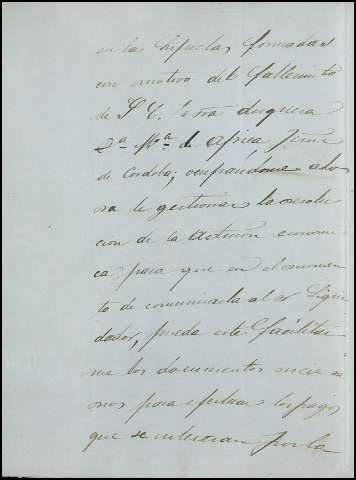 en las hijuelas, formadas
con motivo del fallecimto
de S. E. la Sra duquesa
Da Ma de Africa, Fern.
de Cordoba; ocupándome aho
ra de gestionar la resolu
cion de la Admon económi
ca, para que en el momen
to de comunicarla al Sr Liqui
dador, pueda este facilitar
me los documentos necesa
rios para efectuar los pagos
que se interesan por la